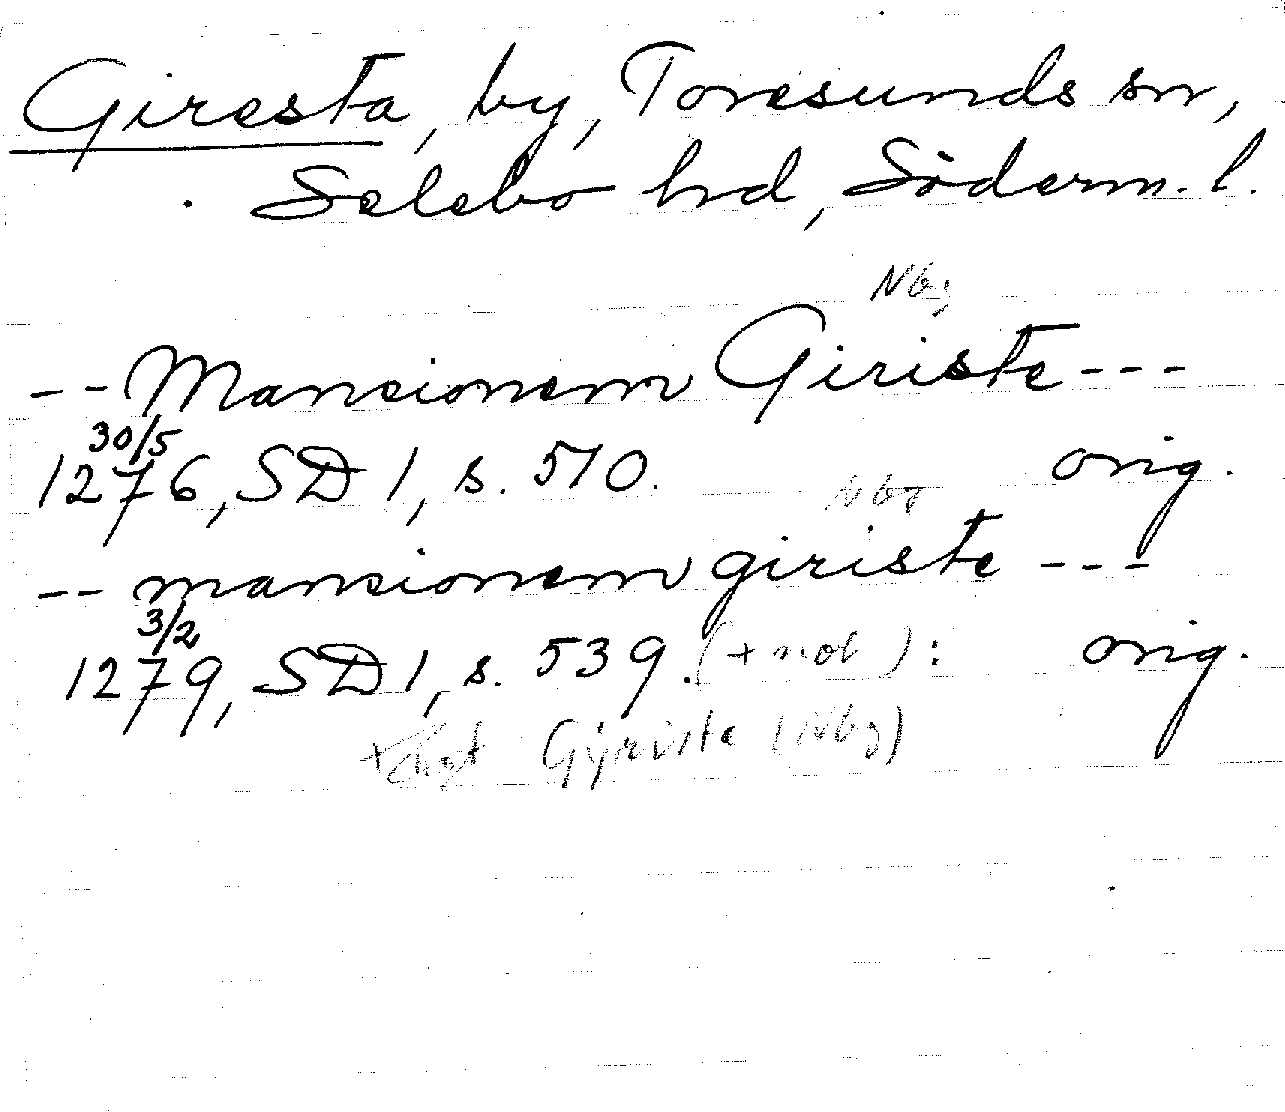 Giresta, by, Toresunds sn,
Selebo hd, Söderm. l.
Nb;
-- Mansionem Giriste ---
30/5
1276, SD 1, s. 510. orig.
-- mansionem giriste ---
3/2
1279, SD 1, s. 539. (+ not ): orig.
Gÿriste (Nbg)